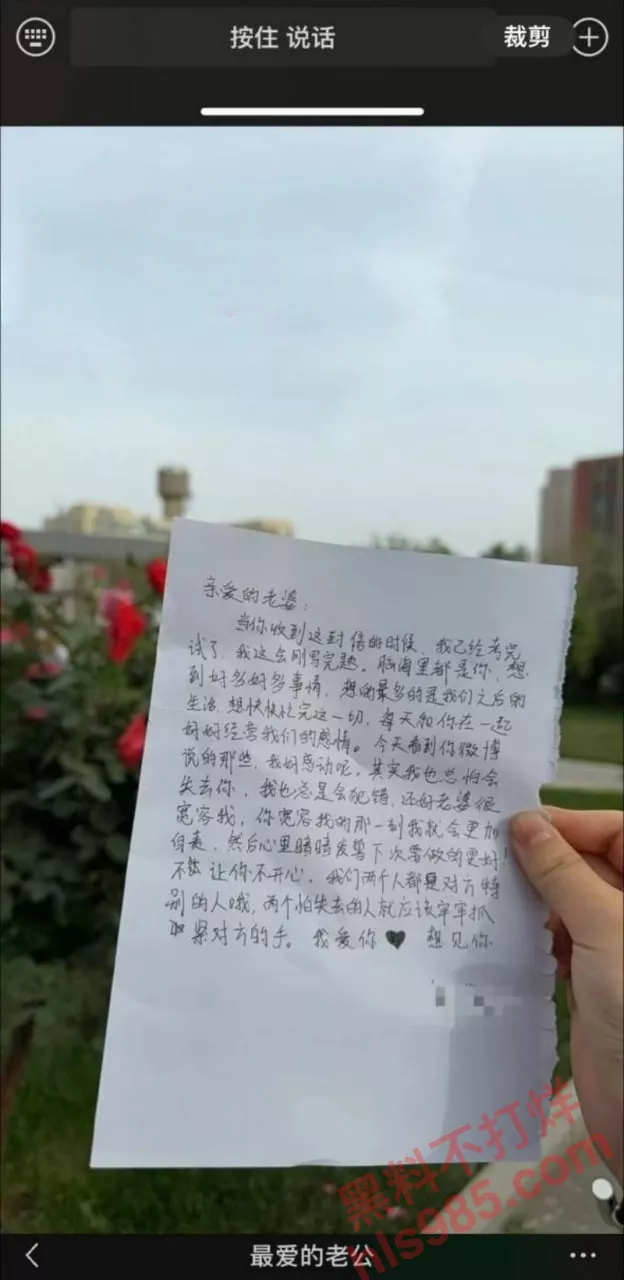 按住 说话
裁剪
亲爱的老婆：
当你收到这封信的时候，我已经考完
试了，我这会刚写完题。脑海里都是你，想
到好多好多事情，想的最多的是我们之后的
生活，想快快忙完这一切，每天和你在一起
好好经营我们的感情。今天看到你微博
说的那些，我好感动呢，其实我也总怕会
失去你，我也总是会犯错，还好老婆很
宽容我，你宽容我的那一刻我就会更加
自责，然后心里暗暗发誓下次要做的更好！
不能让你不开心。我们两个人都是对方特
别的人哦，两个怕失去的人就应该牢牢抓
紧对方的手。我爱你♥ 想见你
黑料不打烊
hls985.com
最爱的老公